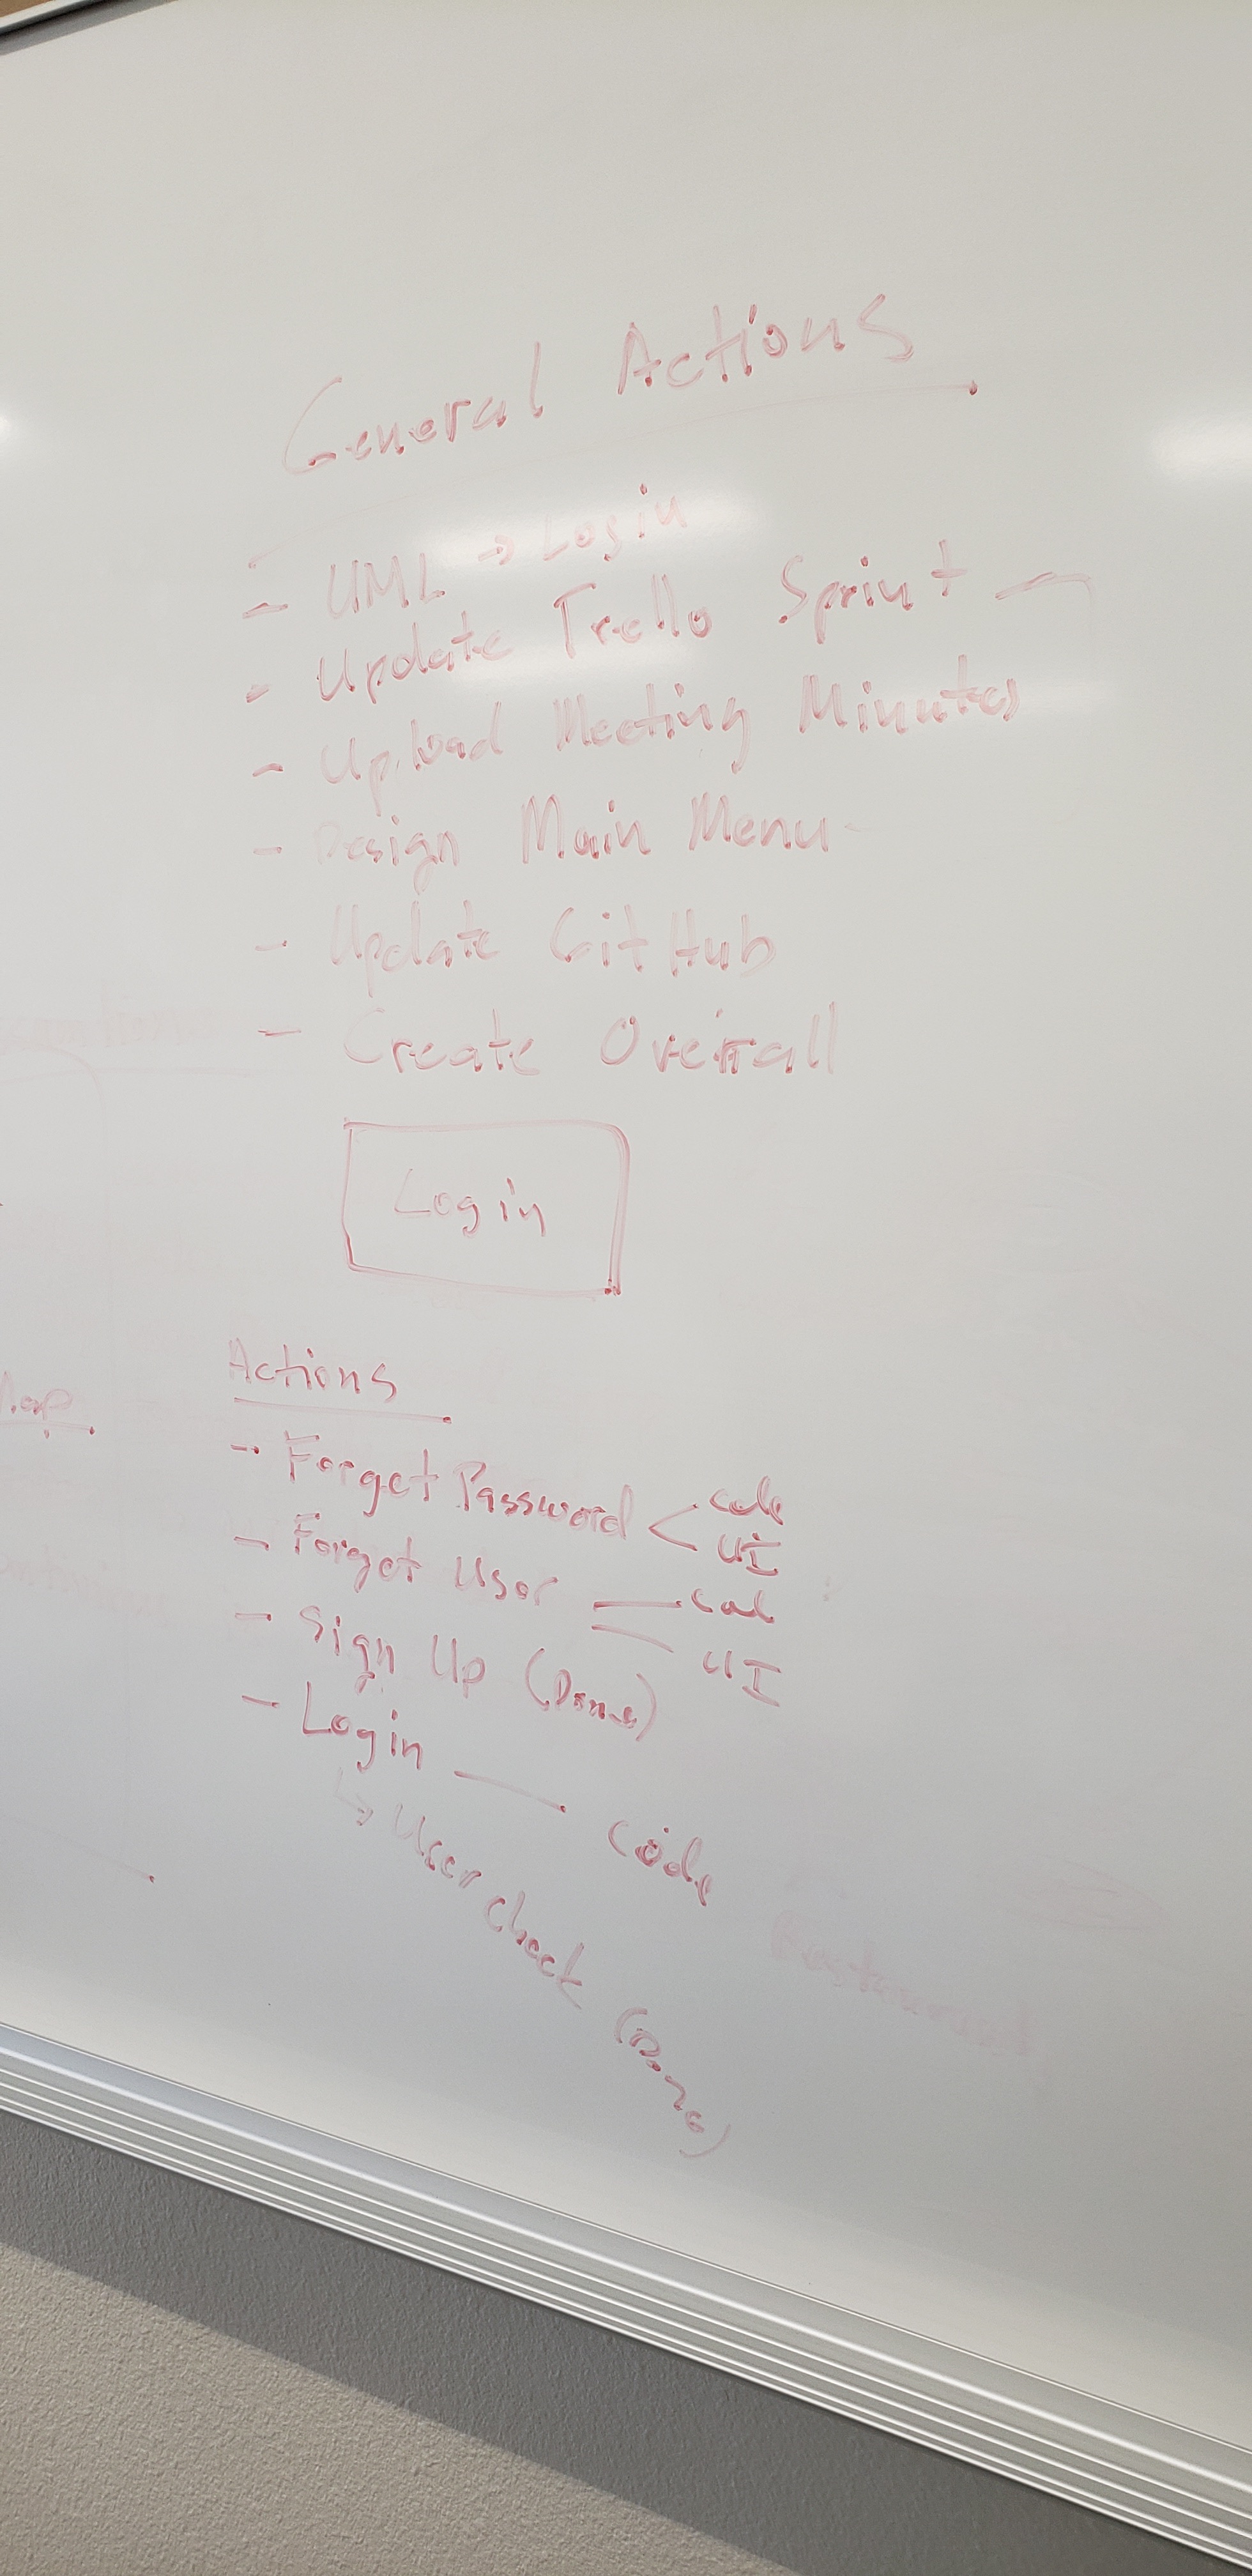 General Actions
- UML → Login
- Update Trello Sprint
- Upload Meeting Minutes
- Design Main Menu
- Update GitHub
- Create Overall
Login
Actions
- Forget Password < code
UI
- Forget User code
UI
- Sign Up (Done)
- Login — code
↳ User check (Done)